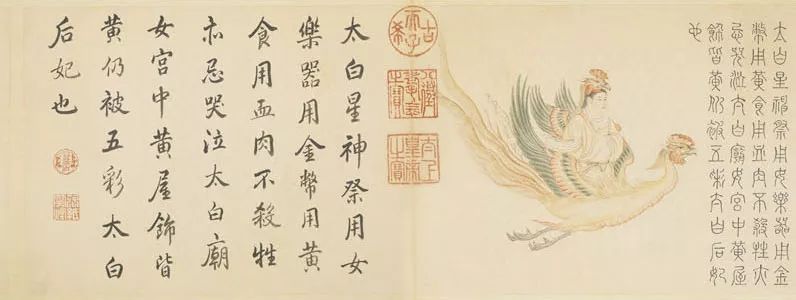 太白星神祭用女樂器用金
幣用黃食用血肉不殺牲亦
忌哭泣太白廟女宮中黃屋
飾皆黃仍被五彩太白后妃
也
古希天子
八徵耄念之寶
太上皇帝之寶
太白星神祭用女
樂器用金幣用黃
食用血肉不殺牲
亦忌哭泣太白廟
女宮中黃屋飾皆
黃仍被五彩太白
后妃也